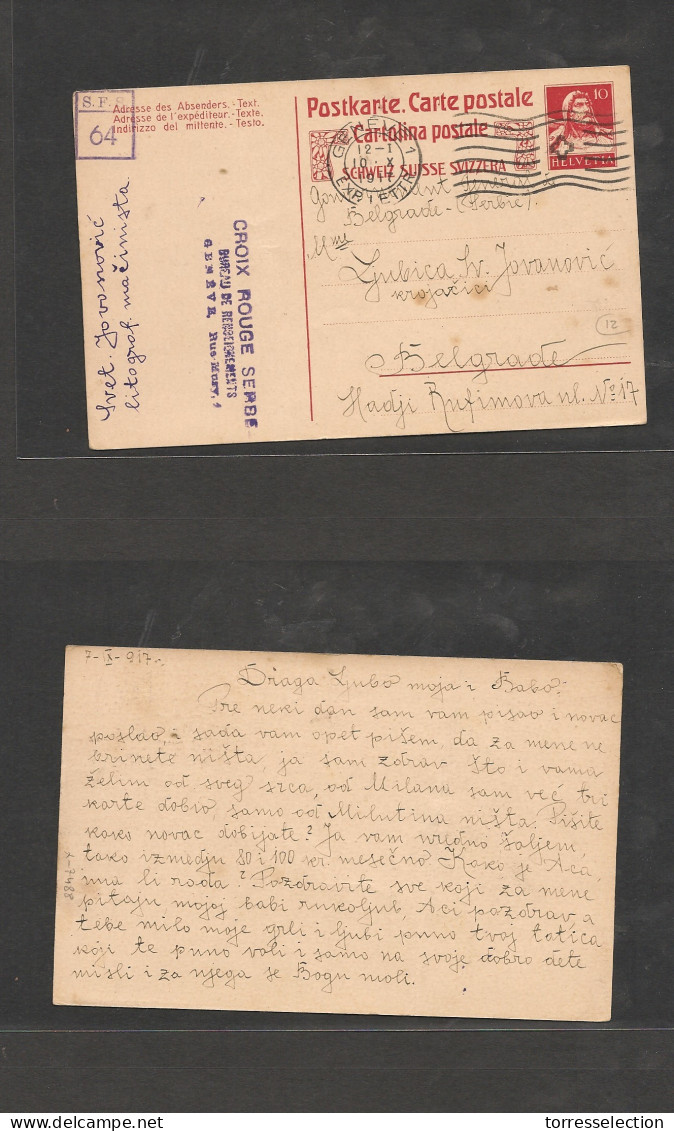 S. F. S.
64
Adresse des Absenders. - Text.
Adresse de l'expéditeur. - Texte.
Indirizzo del mittente. - Testo.
Svet. Jovanović
litograf. mačinista
CROIX ROUGE SERBE
BUREAU DE RENSEIGNEMENTS
GENÈVE,
Postkarte. Carte postale
Cartolina postale
SCHWEIZ SUISSE SVIZZERA
10
HELVETIA
GENÈVE 1
12-1
10. X
1917
EXP. LETTR.
Belgrade - (Serbie)
Mme
Ljubica Sv. Jovanović
krojačici
12
Belgrade
Hadji Rufimova ul. No 17
7-X-917.
Draga Ljubo moja i Babo!
Pre neki dan sam vam pisao i novac
poslao i sada vam opet pišem, da za mene ne
brinete ništa, ja sam zdrav što i vama
želim od sveg srca, od Milana sam već tri
karte dobio samo od Milutina ništa. Pišite
kako novac dobijate? Ja vam uredno šaljem,
tako izmedju 80 i 100 kr. mesečno. Kako je Aca,
ima li roda? Pozdravite sve koji za mene
pitaju mojoj babi rukoljub, Aci pozdrav, a
tebe milo moje grli i ljubi puno tvoj tatica
koji te puno voli i samo na svoje dobro dete
misli i za njega se Bogu moli.
torresselection